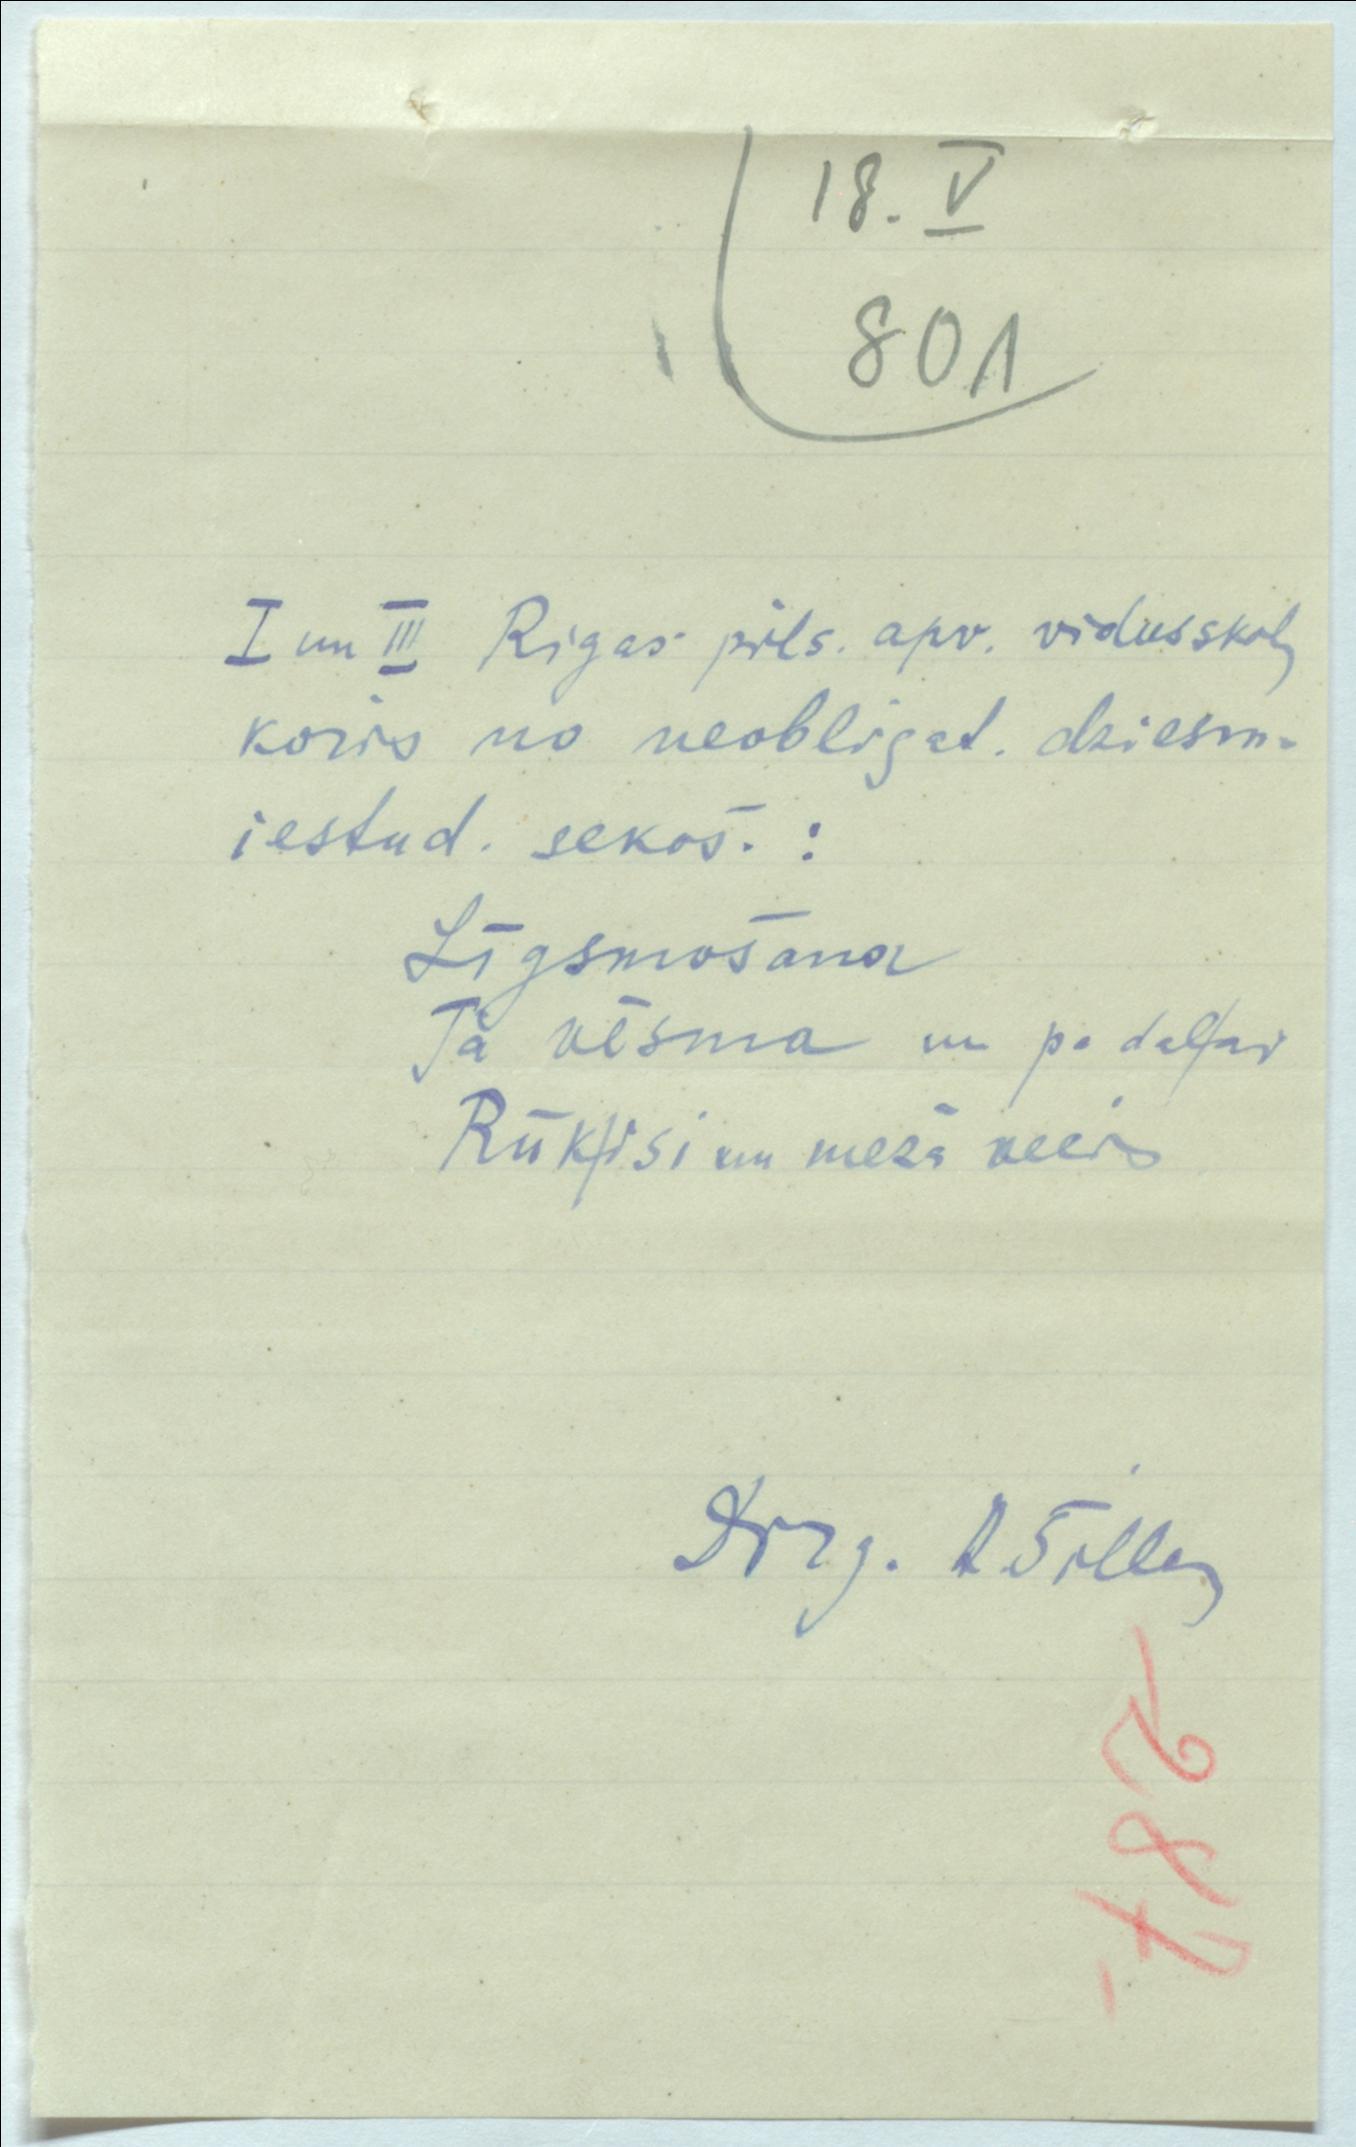 18. V
801
I un III Rigas pils. apv. vidusskoļ
koris no neobligat. dziesm.
iestud. sekoš. :
Līgsmošana
Tā vēsma un pa daļai
Rūķīši un mežā vecis
Dirig.
- 287 -